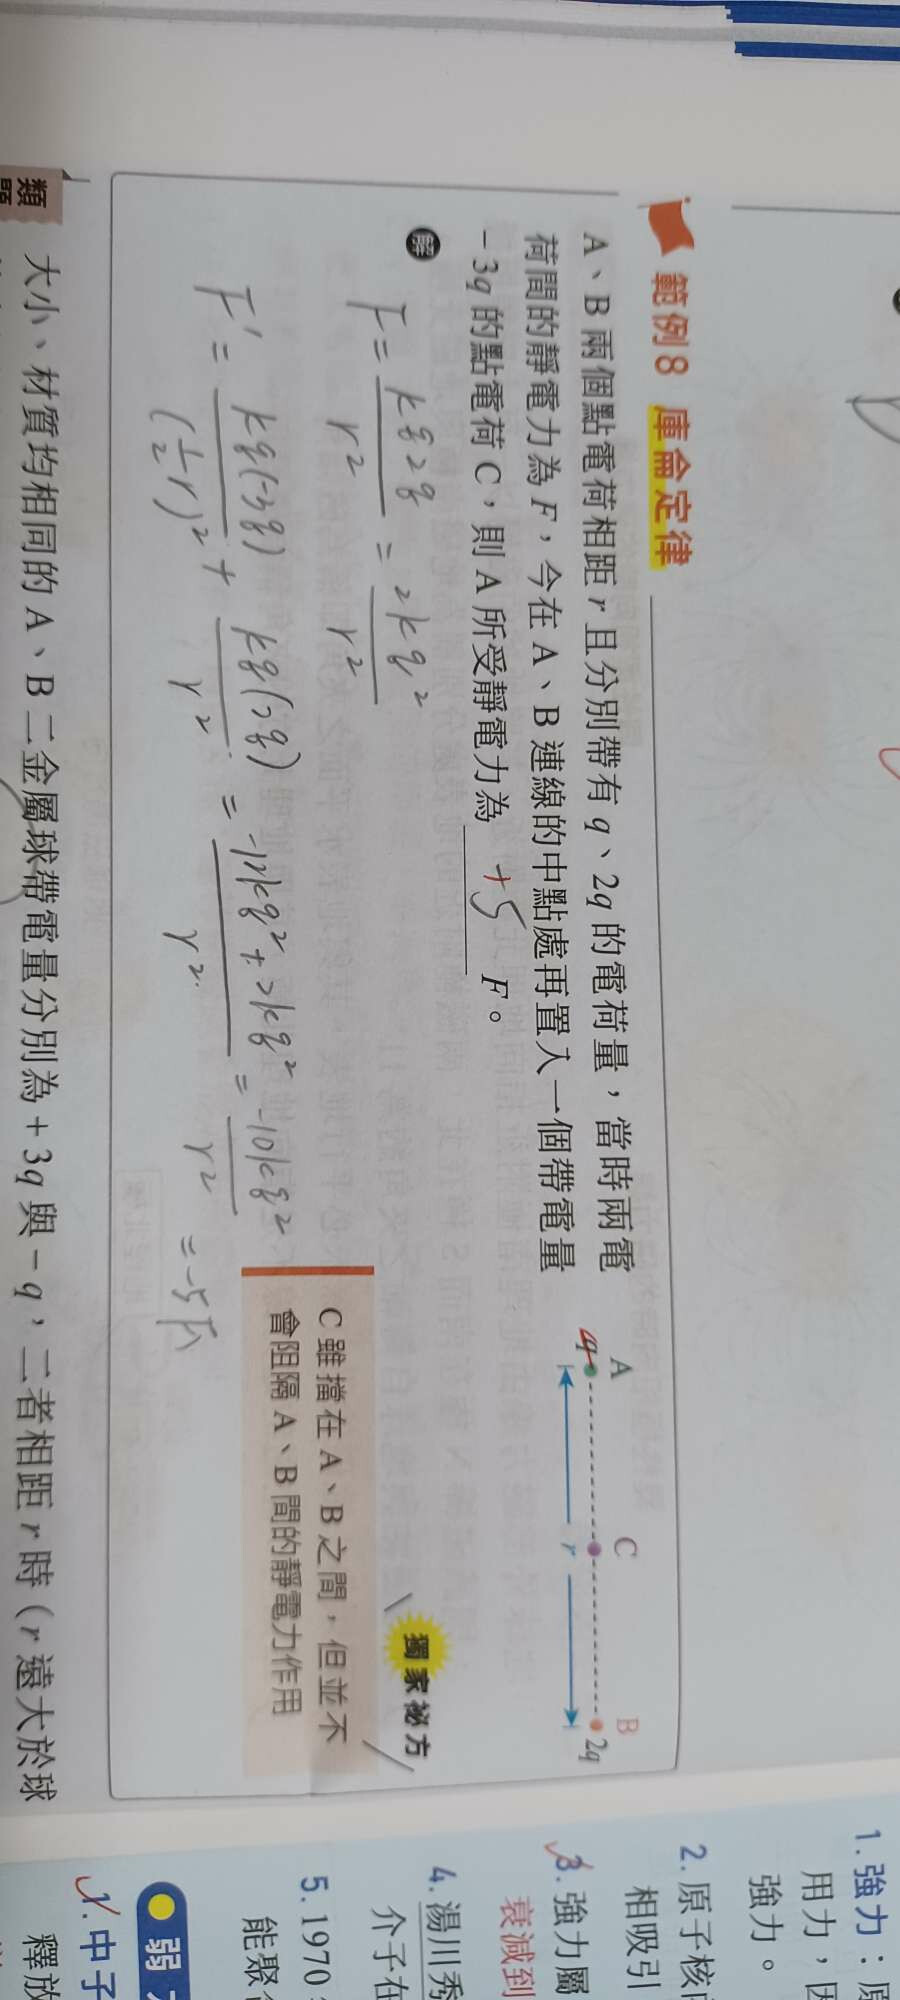 範例8 庫侖定律
A、B兩個點電荷相距r且分別帶有q、2q的電荷量，當時兩電
荷間的靜電力為F，今在A、B連線的中點處再置入一個帶電量
－3q的點電荷C，則A所受靜電力為 +5 F。
A C B
q 2q
r
解
F = kq2q/r² = 2kq²/r²
F' = kq(-3q)/(½r)² + kq(2q)/r² = -12kq²+2kq²/r² = -10kq²/r² = -5F
獨家祕方
C雖擋在A、B之間，但並不
會阻隔A、B間的靜電力作用
類
題
大小、材質均相同的A、B二金屬球帶電量分別為＋3q與－q，二者相距r時（r遠大於球
1.強力：
用力，因
強力。
2.原子核
相吸引
3.強力屬
衰減到
4.湯川秀
介子在
5.1970
能聚
弱
1.中子
釋放